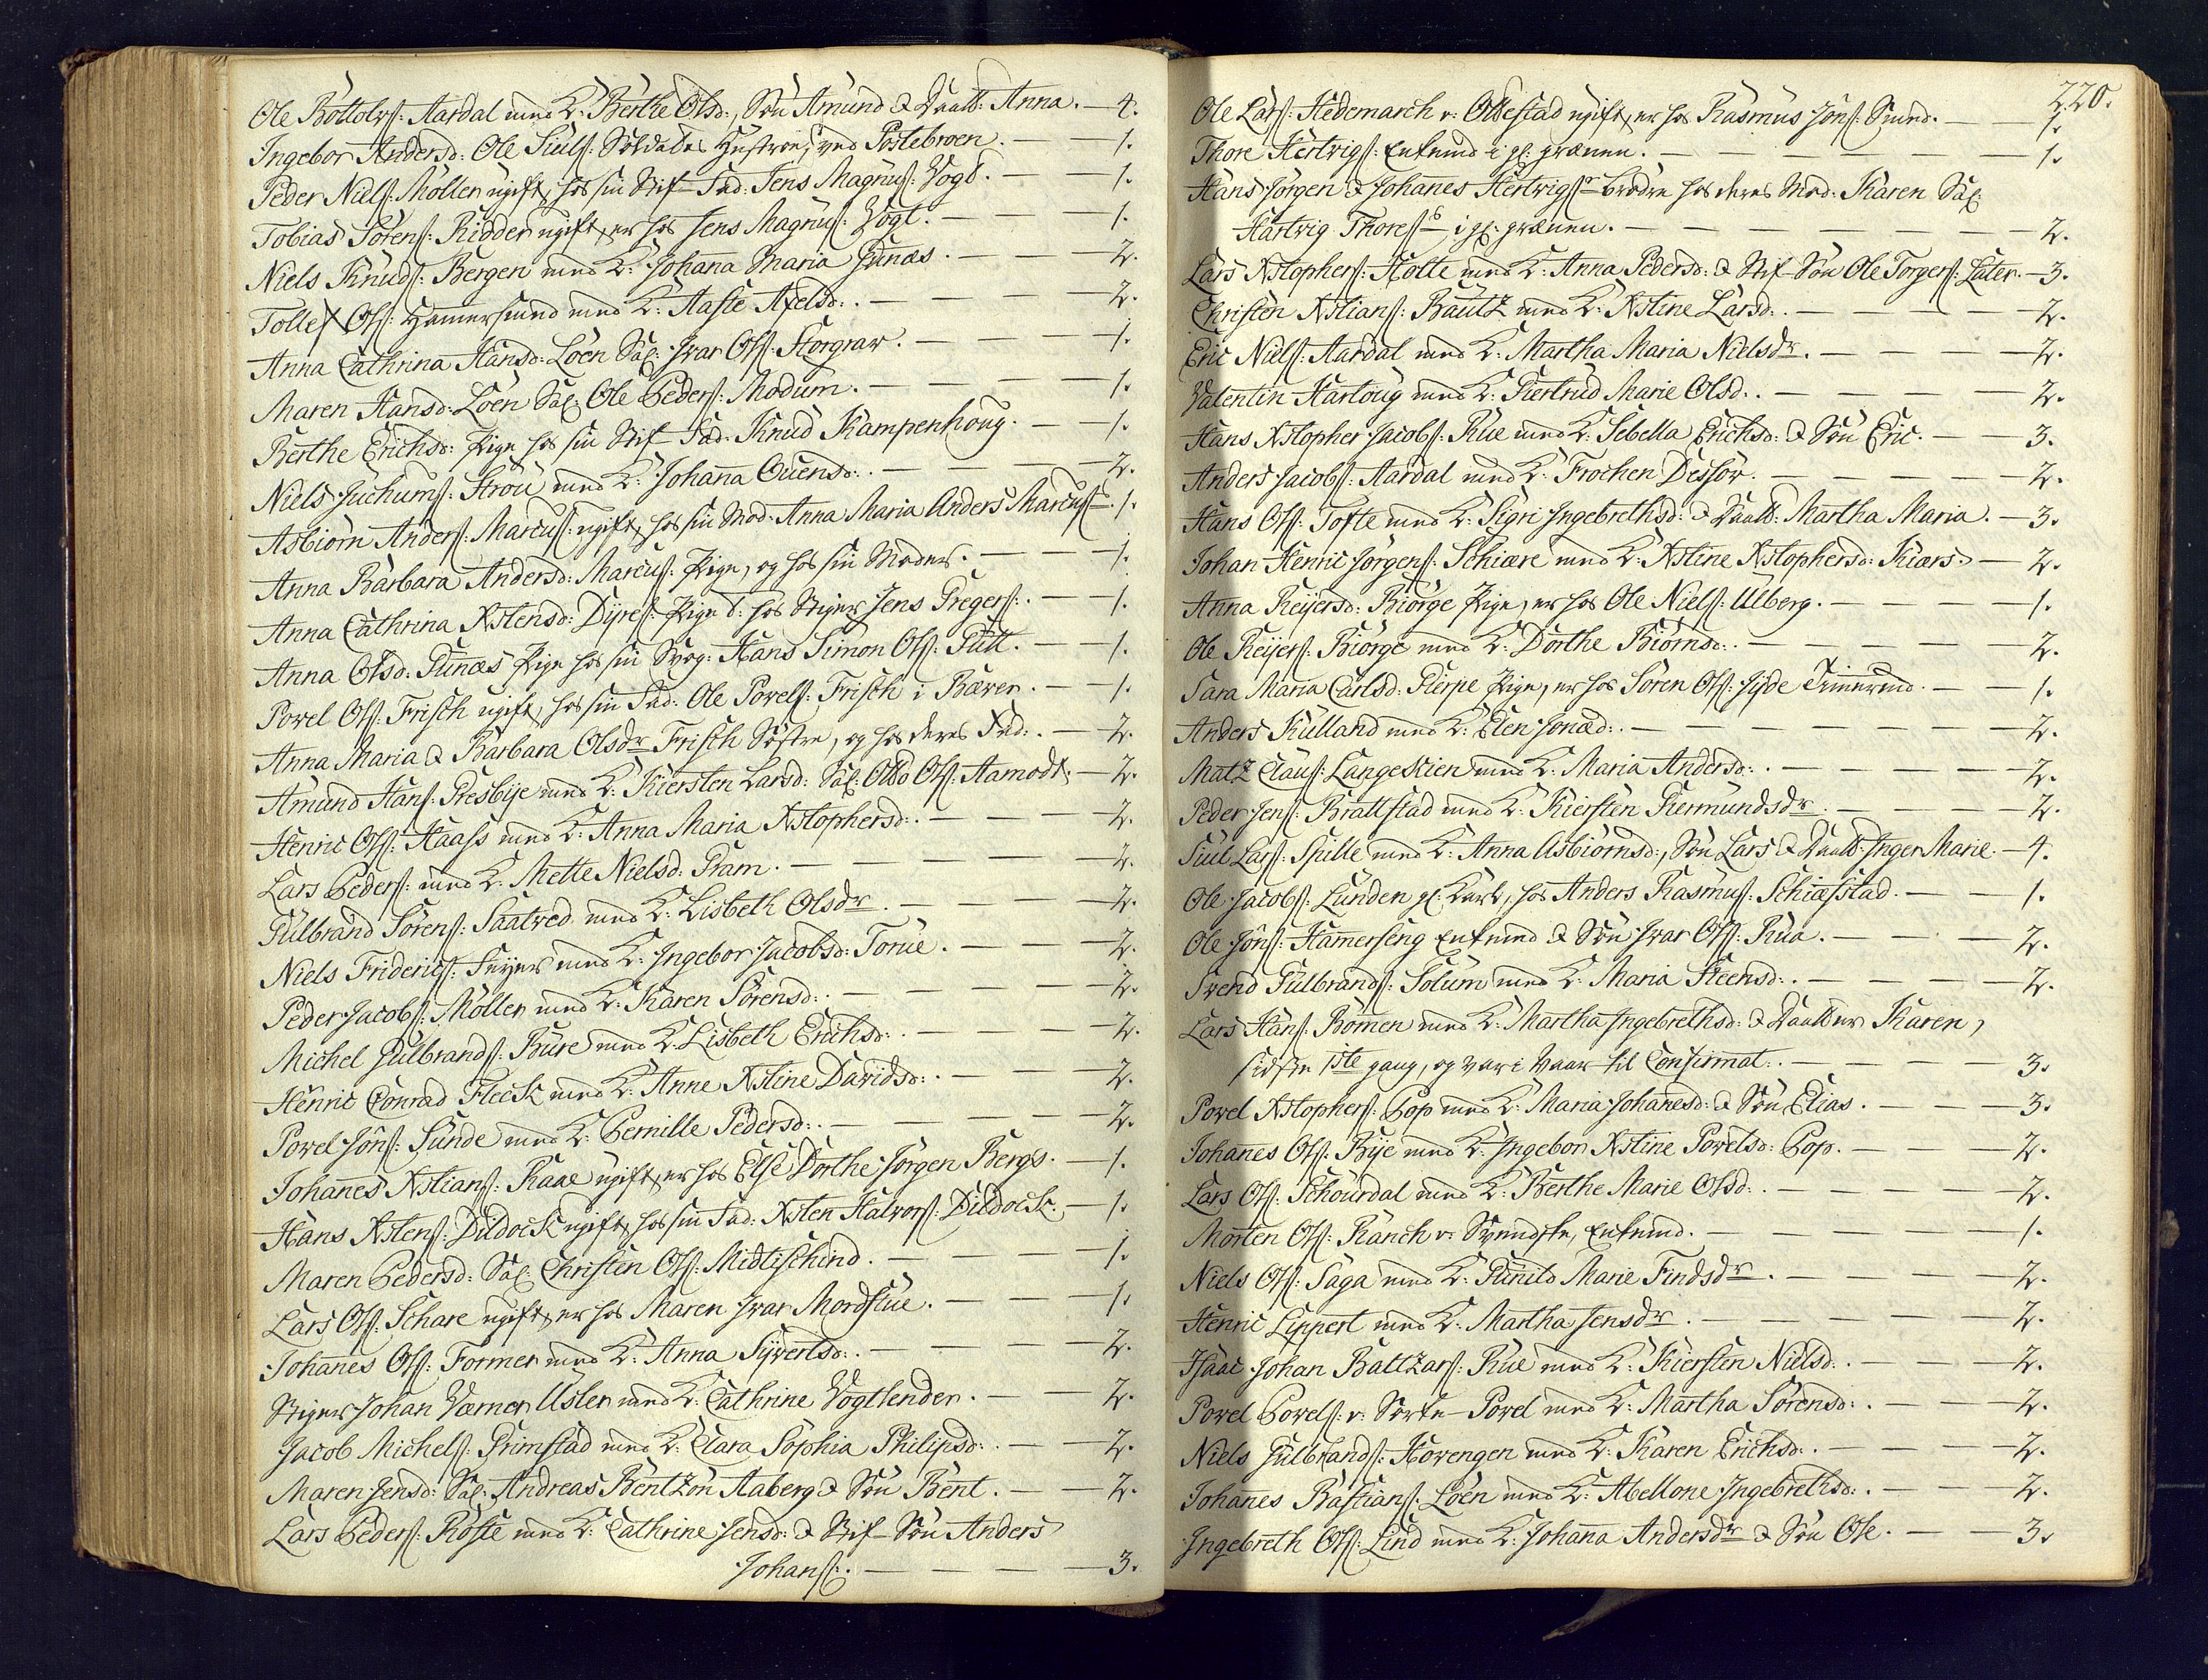 Ole Bottolvs: Aardal med K: Berthe Olsd:, Søn Amund & Daatt: Anna. — 4.
Ingebor Andersd: Ole Juuls: Soldads Hustroe, ved Postebroen. — 1.
Peder Niels: Møller ugift, hos sin Stif-Fad: Jens Magnus: Vogt. — 1.
Tobias Sørens: Ridder ugift, er hos Jens Magnus: Vogt. — 1.
Niels Knuds: Bergen med K: Johana Maria Funæs. — 2.
Tollef Ols: Hamersmed med K: Aaste Axelsd: — 2.
Anna Cathrina Hansd: Løen Sal: Ivar Ols: Storgrav. — 1.
Maren Hansd: Løen Sal: Ole Peders: Modum. — 1.
Berthe Erichsd: Pige hos sin Stif-Fad: Knud Kampenhoug. — 1.
Niels Juchums: Strøu med K: Johana Ouensd: — 2.
Asbiørn Anders: Marcus: ugift, hos sin Mod: Anna Maria Anders Marcus: 1.
Anna Barbara Andersd: Marcus: Pige, og hos sin Moder. — 1.
Anna Cathrina Xstensd: Dyres: Pige t: hos Stiger Jens Gregers: — 1.
Anna Olsd: Funæs Pige hos sin Svog: Hans Simon Ols: Gull. — 1.
Povel Ols: Frisch ugift, hos sin Fad: Ole Povels: Frisch i Bæven. — 1.
Anna Maria & Barbara Olsdr Frisch Søstre, og hos deres Fad: — 2.
Amund Hans: Presbÿe med K: Kiersten Larsd: Sal: Oldo Ols: Aamodt. — 2.
Henric Ols: Haass med K: Anna Maria Xstophersd: — 2.
Lars Peders: med K: Mette Nielsd: Gram. — 2.
Gulbrand Sørens: Saatved med K: Lisbeth Olsdr. — 2.
Niels Friderics: Feyer med K: Ingebor Jacobsd: Torue. — 2.
Peder Jacobs: Møller med K: Karen Sørensd: — 2.
Michel Gulbrands: Bure med K: Lisbeth Erichsd: — 2.
Henric Conrad Fleck med K: Anne Xstine Davidsd: — 2.
Povel Jons: Sunde med K: Pernille Pedersd: — 2.
Johanes Xstians: Raae ugift, er hos Else Dorthe Jørgen Bergs. — 1.
Hans Xstens: Dildock ugift, hos sin Fad: Xsten Halvors: Dildock. — 1.
Maren Pedersd: Sal: Christen Ols: Midtischind. — 1.
Lars Ols: Schare ugift, er hos Maren Ivar Mordstue. — 1.
Johanes Ols: Former med K: Anna Syvertsd: — 2.
Stiger Johan Værner Usler med K: Cathrine Vogtlender. — 2.
Jacob Michels: Grimstad med K: Clara Sophia Philipsd: — 2.
Maren Jensd: Sal: Andreas Bentzon Aaberg & Søn Bent. — 2.
Lars Peders: Røste med K: Cathrine Jensd: & Stif-Søn Anders
Johans: — 3.
220.
Ole Lars: Hedemarch v: Ollestad ugift, er hos Rasmus Jons: Smed. — 1.
Thore Hertvigs: Enkemd i gl: grænen. — 1.
Hans Jørgen & Johanes Hertvigsr brødre hos deres Mod: Karen Sal:
Hartvig Thores: i gl: grænen. — 2.
Lars Xstophers: Holte med K: Anna Pedersd: & Stif-Søn Ole Torgers: Sater. — 3.
Christen Xstians: Bautz med K: Xstine Larsd: — 2.
Eric Niels: Aardal med K: Martha Maria Nielsdr. — 2.
Valentin Hartoug med K: Giertrud Marie Olsd: — 2.
Hans Xstopher Jacobs: Rue med K: Sebella Erichsd: & Søn Eric. — 3.
Anders Jacobs: Aardal med K: Frochen Dessør. — 2.
Hans Ols: Tofte med K: Sigri Ingebrethsd: & Daatt: Martha Maria. — 3.
Johan Henric Jørgens: Schiære med K: Xstine Xstophersd: Kiærs: — 2.
Anna Reijersd: Biørge Pige, er hos Ole Niels: Ulberg. — 1.
Ole Reijers: Biørge med K: Dorthe Biørnsd: — 2.
Sara Maria Carlsd: Gierpe Pige, er hos Søren Ols: Jyde Timermd. — 1.
Anders Kulland med K: Elen Jonæd: — 2.
Matz Claus: Langeskien med K: Maria Andersd: — 2.
Peder Jens: Brattstad med K: Kiersten Germundsdr. — 2.
Juul Lars: Spille med K: Anna Asbiørnsd:, Søn Lars & Daatt: Inger Marie. — 4.
Ole Jacobs: Lunden gl: Karl, hos Anders Rasmus: Schiæsstad. — 1.
Ole Jons: Hamerseng Enkemd & Søn Ivar Ols: Rua. — 2.
Svend Gulbrands: Solum med K: Maria Steensd: — 2.
Lars Hans: Rømen med K: Martha Ingebrethsd: & Daatter Karen,
sidste 1ste gang, og var i Vaar til Confirmat: — 3.
Povel Xstophers: Pop med K: Maria Johanesd: & Søn Elias. — 3.
Johanes Ols: Bye med K: Ingebor Xstine Povelsd: Pop. — 2.
Lars Ols: Schourdal med K: Berthe Marie Olsd: — 2.
Morten Ols: Ranch v: Svendske, Enkemd. — 1.
Niels Ols: Saga med K: Gunild Marie Findsdr. — 2.
Henric Lippert med K: Martha Jensdr. — 2.
Isaac Johan Baltzars: Rue med K: Kiersten Nielsd: — 2.
Povel Povels: v: Sorte-Povel med K: Martha Sørensd: — 2.
Niels Gulbrands: Hovengen med K: Karen Erichsd: — 2.
Johanes Bastians: Løen med K: Abellone Ingebrethsd: — 2.
Ingebreth Ols: Lind med K: Johana Andersdr & Søn Ole. — 3.